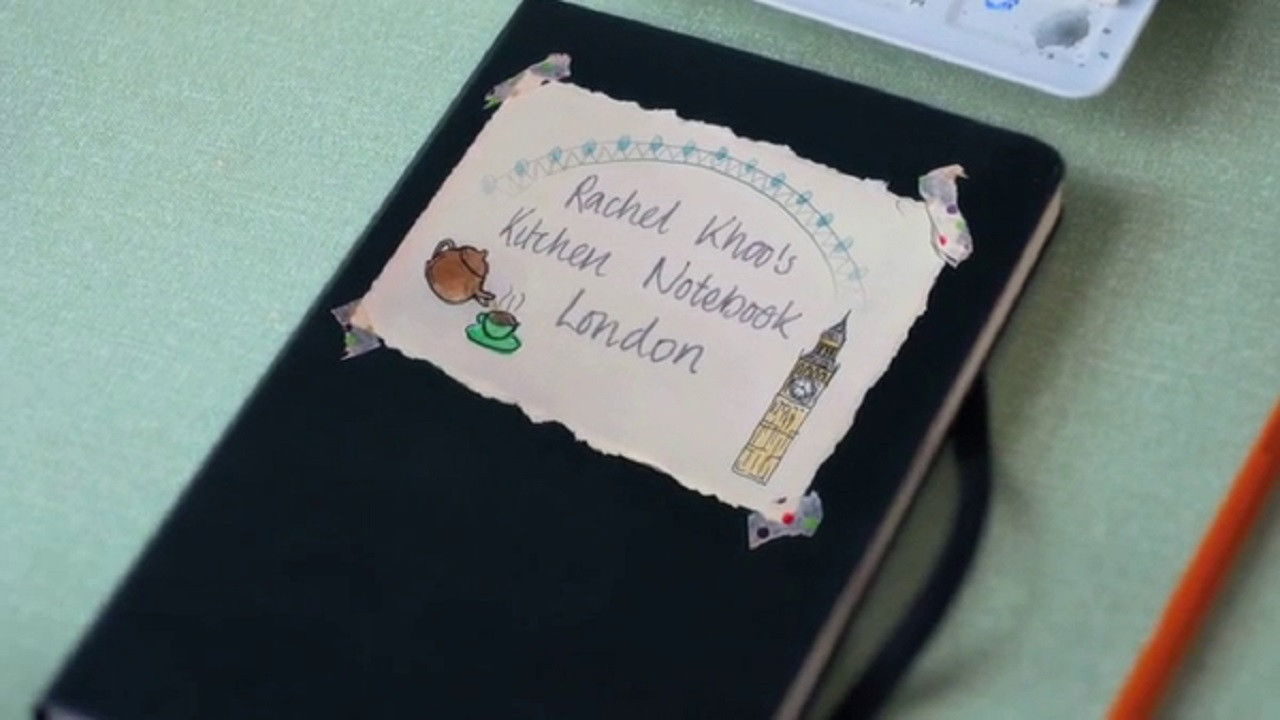 Rachel Khoo's
Kitchen Notebook
London